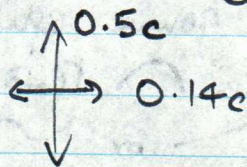 0.5c
0.14c